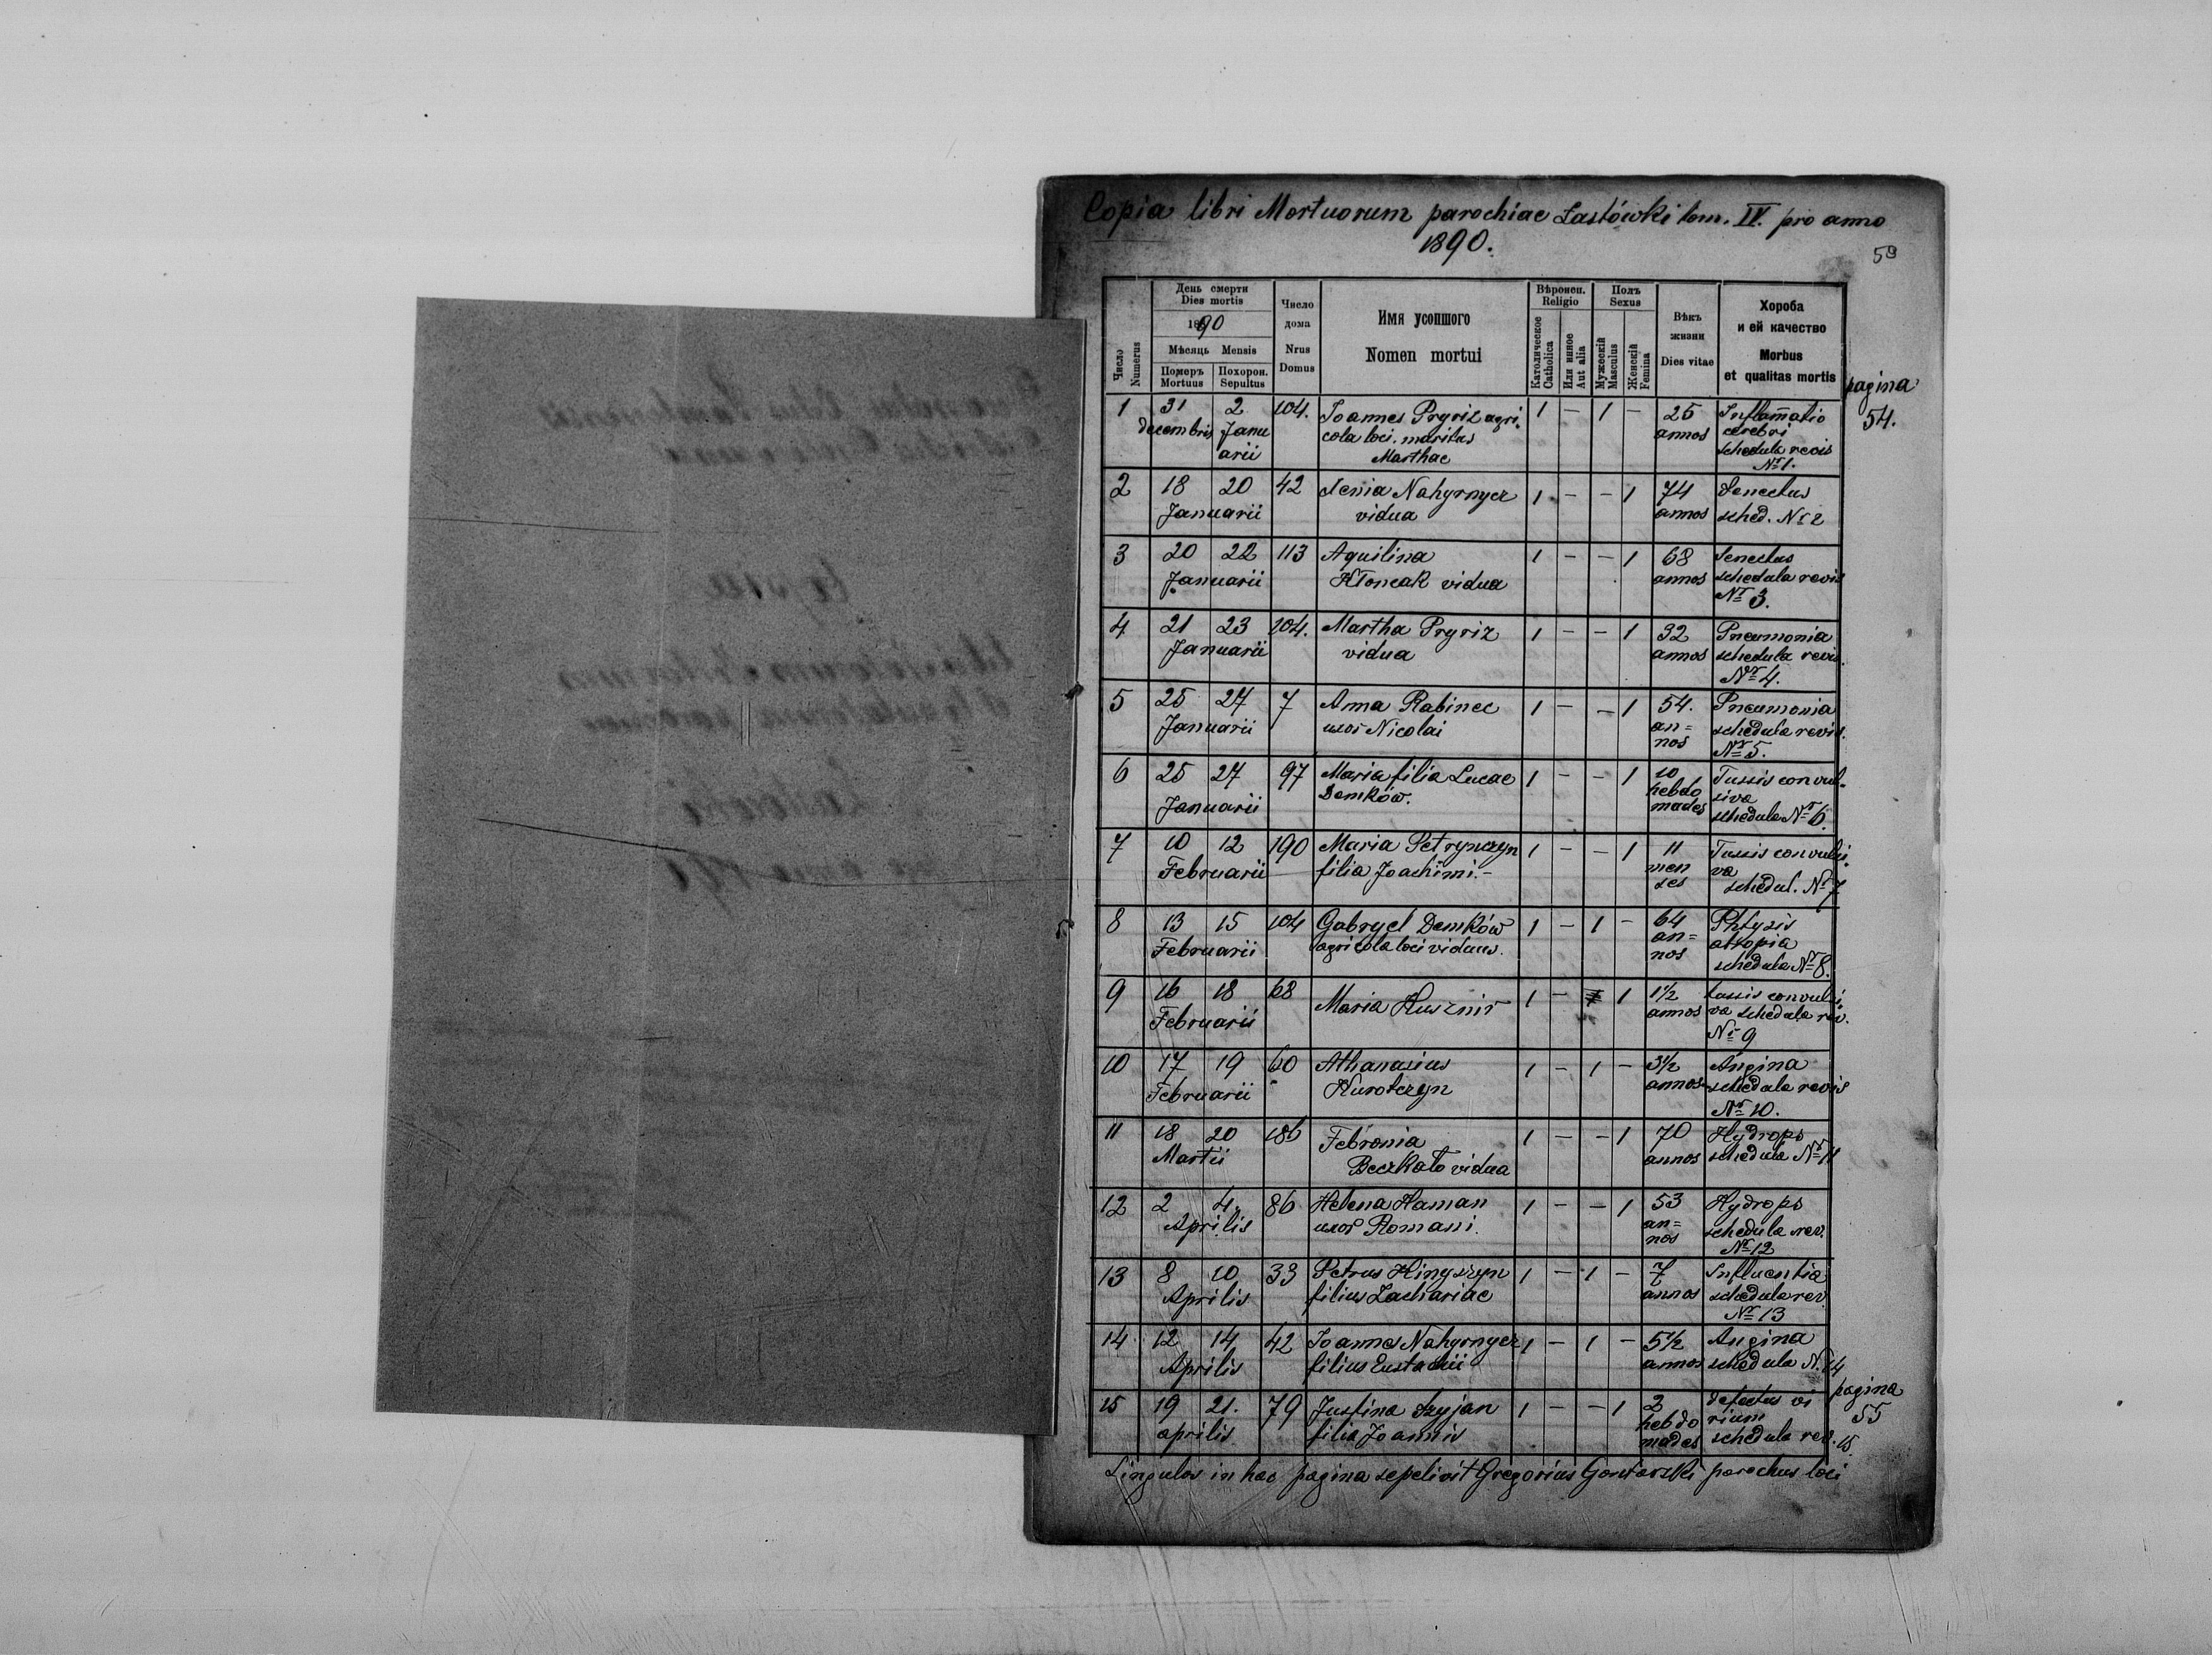 Copia libri Mortuorum parochiae Łastówki tom. IV. pro anno
1890.
Число
Numerus
День смерти
Dies mortis
1890
Мѣсяць Mensis
Померъ
Mortuus
Похорон.
Sepultus
Число
дома
Nrus
Domus
Имя усопшого
Nomen mortui
Вѣроисп.
Religio
Католическое
Catholica
Или иное
Aut alia
Полъ
Sexus
Мужескій
Masculus
Женскій
Femina
Вѣкъ
жизни
Dies vitae
Хороба
и ей качество
Morbus
et qualitas mortis
pagina
54.
1 31 2 104. Joannes Pryriz agri- 1 – 1 – 25 Inflam̄atio
decembris Janu cola loci. maritus annos cerebri
arii Marthae schedula revis
Nr 1.
2 18 20 42 Xenia Nahyrnycz 1 – – 1 74 Senectus
Januarii vidua annos sched. Nr 2
3 20 22 113 Aquilina 1 – – 1 68 Senectus
Januarii Kloncak vidua annos schedula revis
Nr 3.
4 21 23 104. Martha Pryriz 1 – – 1 32 Pneumonia
Januarii vidua annos schedula revis.
Nr 4.
5 25 27 7 Anna Rabinec 1 – – 1 54. Pneumonia
Januarii uxor Nicolai an= schedula revis.
nos Nr 5.
6 25 27 97 Maria filia Lucae 1 – – 1 10 Tussis convul-
Januarii Demków. hebdo siva
mades schedula Nr 6.
7 10 12 190 Maria Petrynczyn 1 – – 1 11 Tussis convulsi-
Februarii filia Joachimi.– men va
ses schedul. Nr 7
8 13 15 104 Gabryel Demków 1 – 1 – 64 Phtysis
Februarii agricola loci viduus. an= atropia
nos schedula Nr 8.
9 16 18 68 Maria Husznir 1 – 1 1½ tussis convulsi-
Februarii annos va schedula rev.
Nr 9
10 17 19 60 Athanasius 1 – 1 – 3½ Angina
Februarii Kurotczyn annos schedula revis
Nr 10.
11 18 20 186 Febronia 1 – – 1 70 Hydrops
Martii Beczkało vidua annos schedula Nr 11
12 2 4. 86 Helena Haman 1 – – 1 53 Hydrops
Aprilis uxor Romani. an= schedula rev.
nos Nr 12
13 8 10 33 Petrus Hinyszyn 1 – 1 – 7 Influentia
Aprilis filius Zachariae annos schedula rev.
Nr 13
14 12 14 42 Joannes Nahyrnycz 1 – 1 – 5½ Angina
Aprilis filius Eustachii annos schedula N. 14
pagina
55
15 19 21. 79 Justina Szyjan 1 – – 1 2 defectus vi
aprilis filia Joannis hebdo rium
mades schedula rev. 15.
Singulos in hac pagina sepelivit Gregorius parochus loci